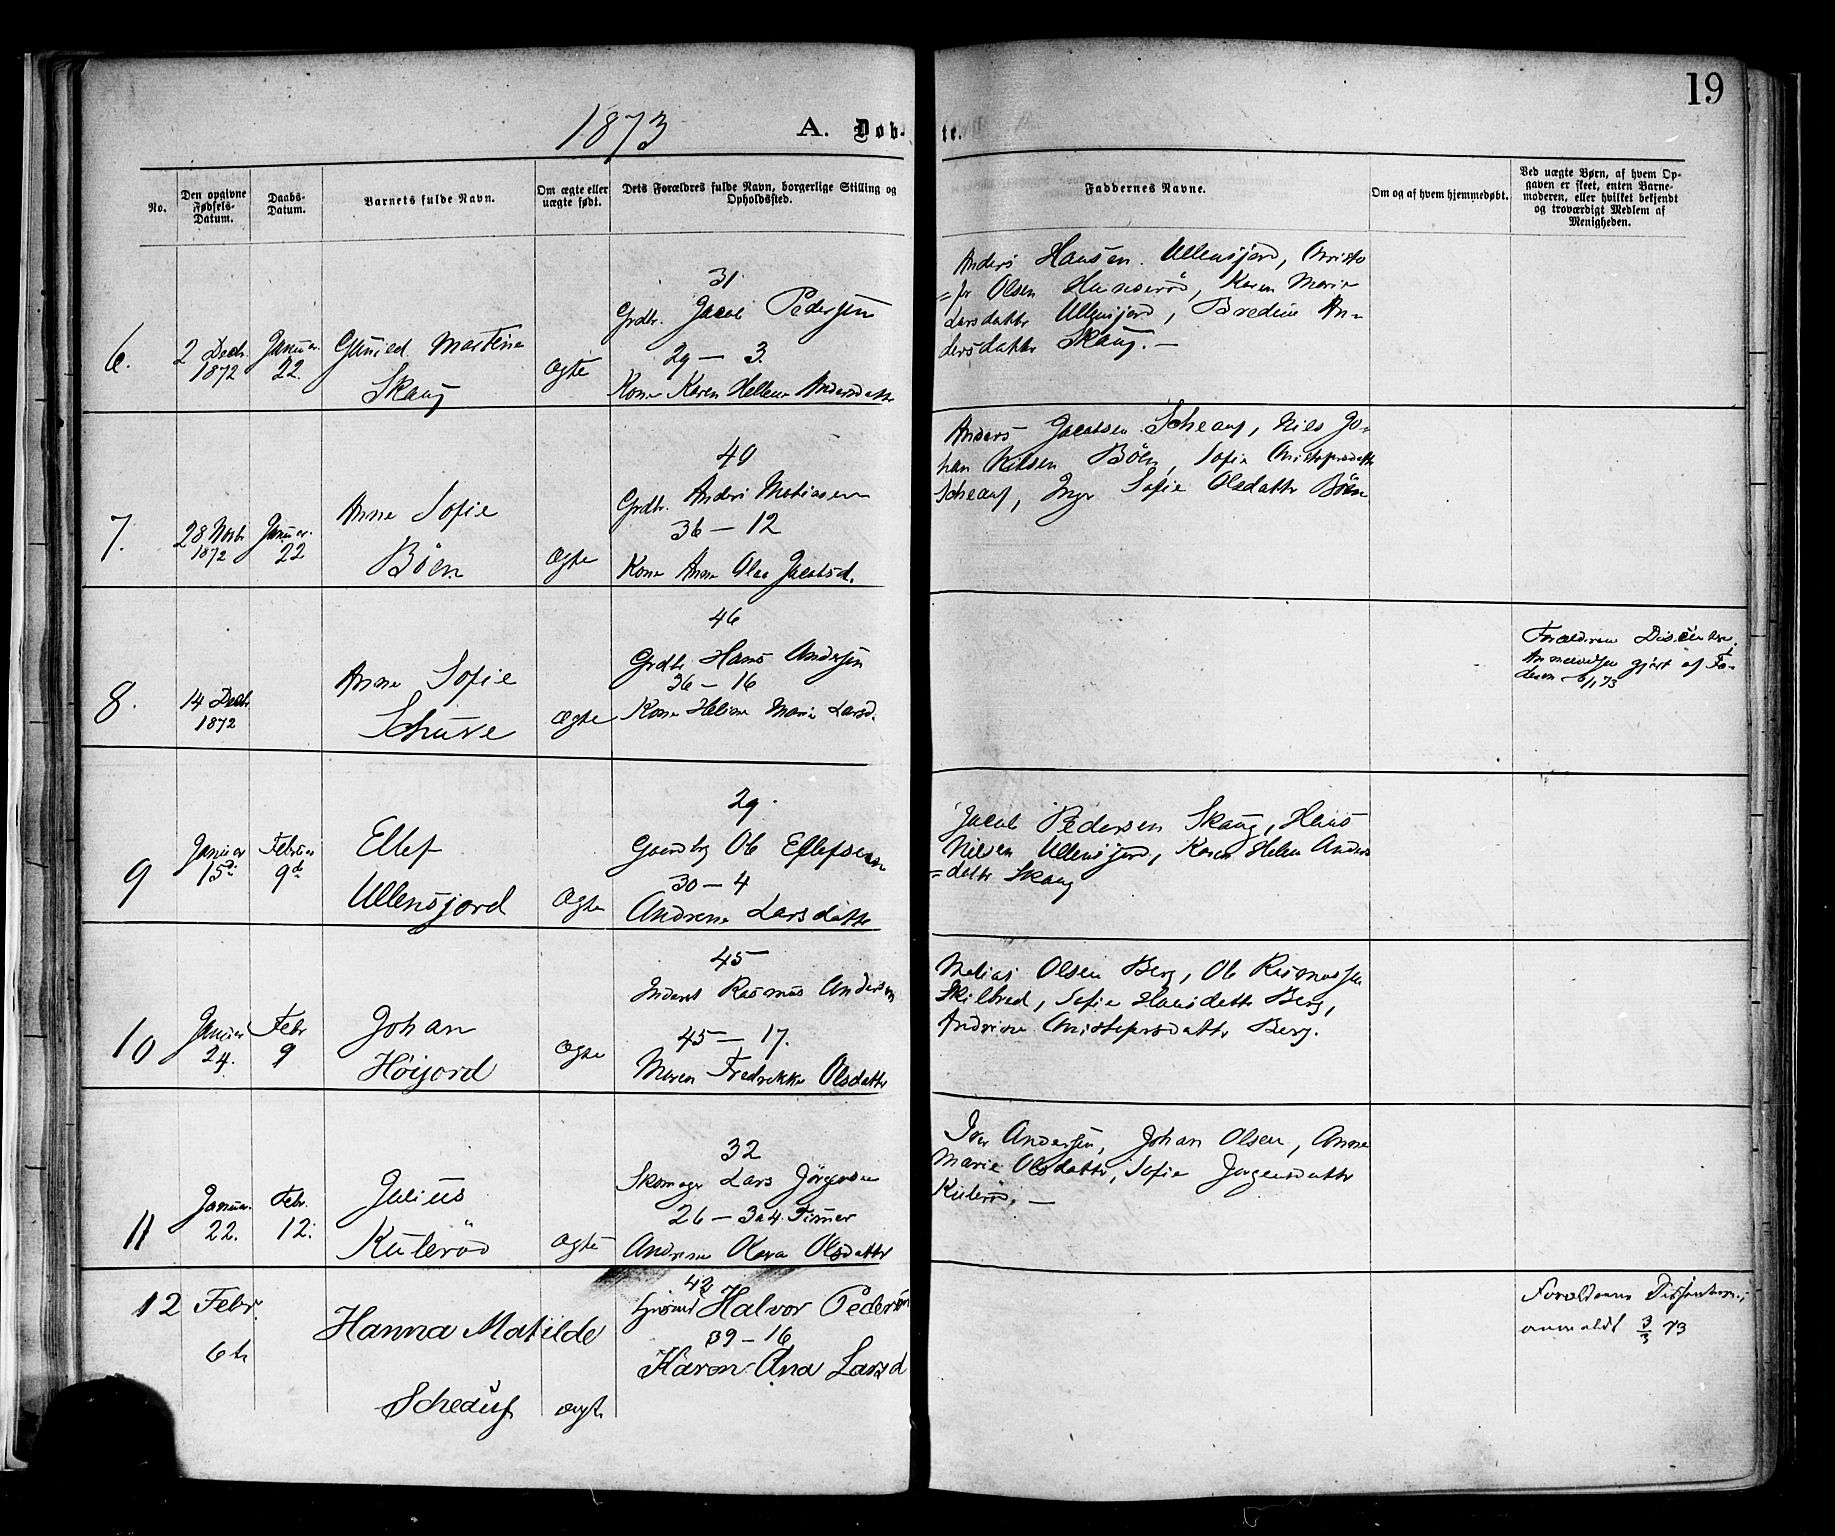 19
1873 A. Døb- te.
No.
Den opgivne Fødsels-Datum.
Daabs-Datum.
Barnets fulde Navn.
Om ægte eller uægte født.
Dets Forældres fulde Navn, borgerlige Stilling og Opholdssted.
Faddernes Navne.
Om og af hvem hjemmedøbt.
Ved uægte Børn, af hvem Op-
gaven er skeet, enten Barne-
moderen, eller hvilket bekjendt
og troværdigt Medlem af
Menigheden.
6.
2 Decbr
1872
Januar
22.
Gunild Martine
Skaug
ægte
31
Grdbr. Jacob Pedersen
29 – 3.
Kone Karen Hellene Andersdatter
Anders Hansen Ullensjord, Christo
=fer Olsen Hunserød, Karen Marie
Larsdatter Ullensjord, Bredine An=
dersdatter Skaug. –
7.
28 Novbr
1872
Januar
22
Anne Sofie
Böen
ægte
40
Grdbr. Anders Matiasen
36 – 12
Kone Anne Olea Jacobsd.
Anders Jacobsen Scheauf, Niels Jo-
han Nilsen Böen, Sofie Christofersdatter
Scheauf, Inger Sofie Olsdatter Böen
8.
14 Decbr
1872
Anne Sofie
Schuve
ægte
46
Grdbr Hans Andersen
36 – 16
KoneHeline Marie Larsd.
Forældrene Dissentere,
Anmeldelse gjort af Fa-
deren 6/1 73
9
Januar
15de
Februar
9de
Ellef
Ullensjord
Ægte
29.
Gaardbrg Ole Ellefsen
30 – 4
Andrene Larsdatter
Jacob Pedersen Skaug, Hans
Nilsen Ullensjord, Karen Helene Anders
=datter Skaug
10
Januar
24.
Febr
9
Johan
Höijord
ægte
45
Inderst Rasmus Andersen
45 – 17.
Maren Fredrekke Olsdatter
Matias Olsen Berg, Ole Rasmussen
Skilbred, Sofie Hansdatter Berg,
Andrine Christofersdatter Berg.
11
Januar.
22.
Febr.
12.
Julius
Kulerød
ægte
32
Skomager Lars Jörgensen
26 – 3 a 4 Timer
Andrine Olava Olsdatter
Iver Andersen, Johan Olsen, Anne
Marie Olsdatter, Sofie Jørgensdatter
Kulerød. –
12
Febr.
6te
Hanna Matilde
Scheduf
ægte
42
Halvor Pedersen
39 – 16
Karen Ana Larsd
Forældrene Dissentere,
anmeldt 3/3 73